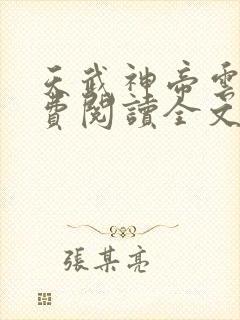 天武神帝雲
費閱讀全文
張某亮